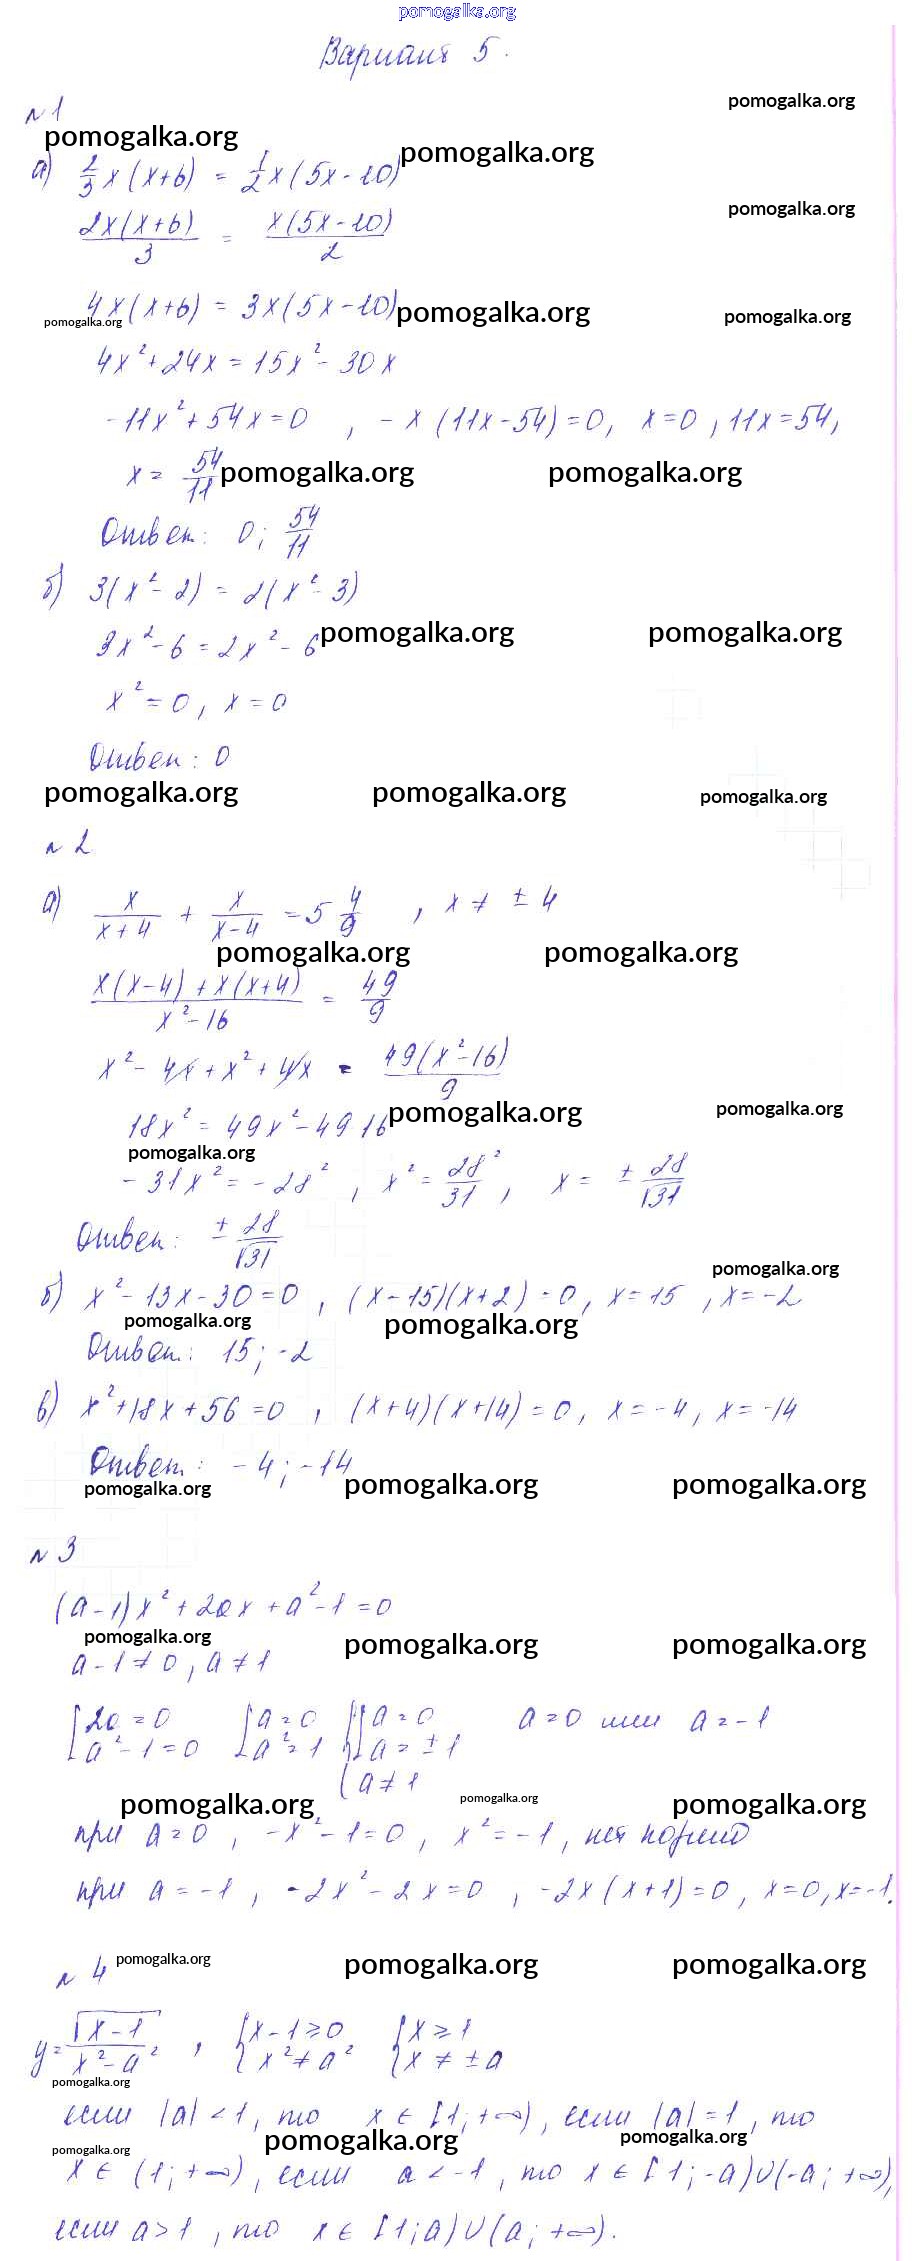 pomogalka.org
Вариант 5.
n 1
pomogalka.org
pomogalka.org
pomogalka.org
а) 2/3 x (x+6) = 1/2 x (5x-10)
pomogalka.org
2x(x+6)/3 = x(5x-10)/2
4x(x+6) = 3x(5x-10)
pomogalka.org
pomogalka.org
pomogalka.org
4x² + 24x = 15x² - 30x
-11x² + 54x = 0 , -x (11x-54) = 0, x=0 , 11x=54,
x = 54/11
pomogalka.org
pomogalka.org
Ответ: 0; 54/11
б) 3(x² - 2) = 2(x² - 3)
3x² - 6 = 2x² - 6
pomogalka.org
pomogalka.org
x² = 0, x = 0
Ответ: 0
pomogalka.org
pomogalka.org
pomogalka.org
n 2
а) x/(x+4) + x/(x-4) = 5 4/9 , x ≠ ± 4
pomogalka.org
pomogalka.org
(x(x-4) + x(x+4))/(x²-16) = 49/9
x² - 4x + x² + 4x = 49(x²-16)/9
pomogalka.org
pomogalka.org
18x² = 49x² - 49·16
pomogalka.org
-31x² = -28² , x² = 28²/31 , x = ± 28/√31
Ответ: ± 28/√31
pomogalka.org
б) x² - 13x - 30 = 0 , (x-15)(x+2) = 0, x=15 , x=-2
pomogalka.org
pomogalka.org
Ответ: 15; -2
в) x² + 18x + 56 = 0 , (x+4)(x+14) = 0, x=-4, x=-14
Ответ: -4; -14
pomogalka.org
pomogalka.org
pomogalka.org
n 3
(a-1)x² + 2ax + a² - 1 = 0
pomogalka.org
pomogalka.org
pomogalka.org
a-1 ≠ 0, a ≠ 1
[2a = 0 [a = 0 {[a = 0 a=0 или a=-1
[a² - 1 = 0 [a² = 1 {[a = ±1
{a ≠ 1
pomogalka.org
pomogalka.org
pomogalka.org
при a=0 , -x² - 1 = 0 , x² = -1, нет корней
при a = -1 , -2x² - 2x = 0 , -2x (x+1) = 0, x=0, x=-1.
n 4
pomogalka.org
pomogalka.org
pomogalka.org
y = √(x-1)/(x²-a²) , {x-1 ≥ 0 {x ≥ 1
{x² ≠ a² {x ≠ ±a
pomogalka.org
если |a| < 1, то x ∈ [1; +∞), если |a| = 1, то
pomogalka.org
pomogalka.org
pomogalka.org
x ∈ (1; +∞), если a < -1 , то x ∈ [1; -a)∪(-a; +∞),
если a > 1 , то x ∈ [1; a)∪(a; +∞).